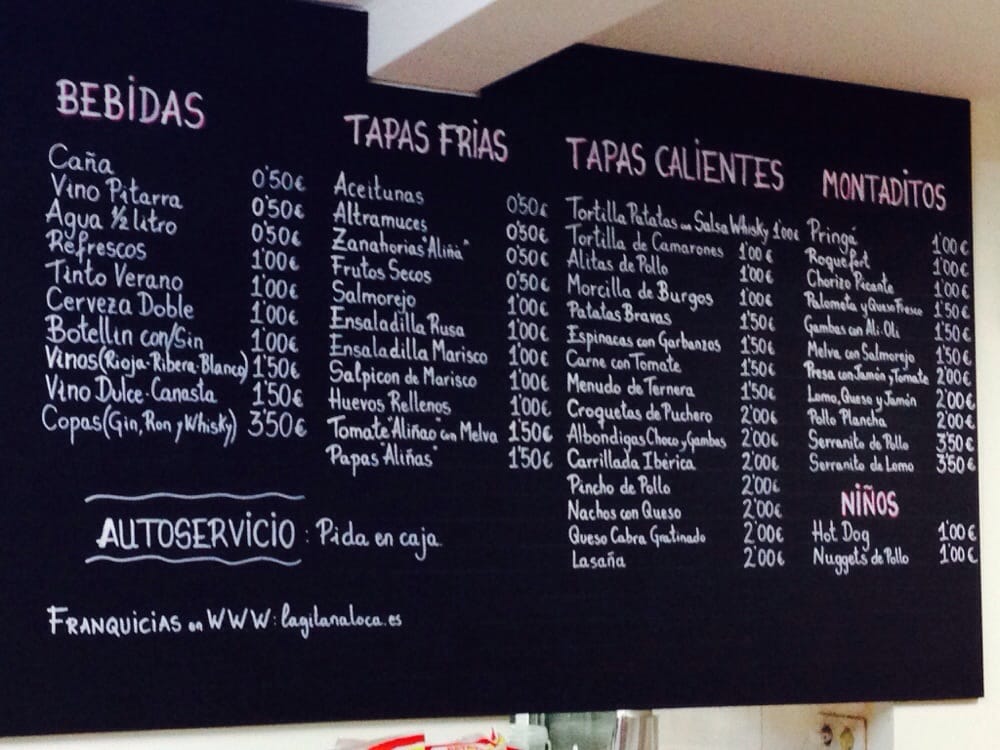 BEBIDAS
Caña 0'50€
Vino Pitarra 0'50€
Agua ½ litro 0'50€
Refrescos 1'00€
Tinto Verano 1'00€
Cerveza Doble 1'00€
Botellin con/Sin 1'00€
Vinos (Rioja-Ribera-Blanco) 1'50€
Vino Dulce-Canasta 1'50€
Copas (Gin, Ron y Whisky) 3'50€
TAPAS FRIAS
Aceitunas 0'50€
Altramuces 0'50€
Zanahorias "Aliñá" 0'50€
Frutos Secos 0'50€
Salmorejo 1'00€
Ensaladilla Rusa 1'00€
Ensaladilla Marisco 1'00€
Salpicon de Marisco 1'00€
Huevos Rellenos 1'00€
Tomate "Aliñao" con Melva 1'50€
Papas "Aliñas" 1'50€
TAPAS CALIENTES
Tortilla Patatas con Salsa Whisky 1'00€
Tortilla de Camarones 1'00€
Alitas de Pollo 1'00€
Morcilla de Burgos 1'00€
Patatas Bravas 1'50€
Espinacas con Garbanzos 1'50€
Carne con Tomate 1'50€
Menudo de Ternera 1'50€
Croquetas de Puchero 2'00€
Albondigas Choco y Gambas 2'00€
Carrillada Ibérica 2'00€
Pincho de Pollo 2'00€
Nachos con Queso 2'00€
Queso Cabra Gratinado 2'00€
Lasaña 2'00€
MONTADITOS
Pringá 1'00€
Roquefort 1'00€
Chorizo Picante 1'00€
Palometa y Queso Fresco 1'50€
Gambas con Ali-Oli 1'50€
Melva con Salmorejo 1'50€
Presa con Jamón y Tomate 2'00€
Lomo, Queso y Jamón 2'00€
Pollo Plancha 2'00€
Serranito de Pollo 3'50€
Serranito de Lomo 3'50€
NIÑOS
Hot Dog 1'00€
Nuggets de Pollo 1'00€
AUTOSERVICIO : Pida en caja.
FRANQUICIAS en WWW: lagitanaloca.es